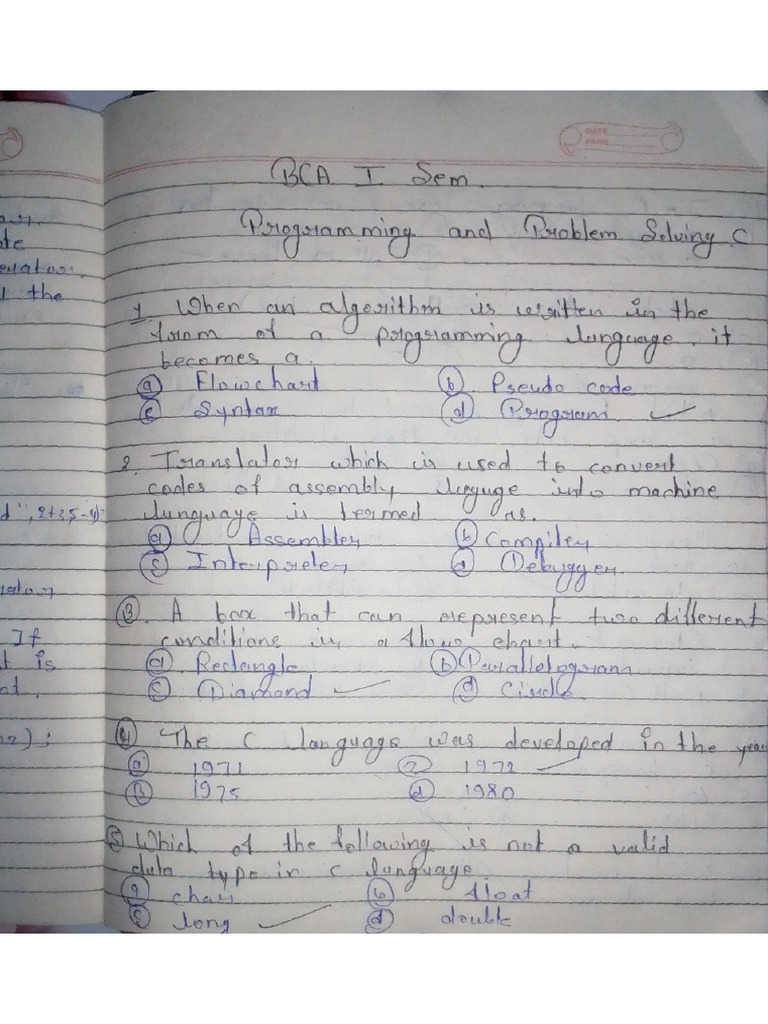 DATE
PAGE
BCA I Sem.
Programming and Problem Solving C
1. When an algorithm is written in the
from of a programming language, it
becomes a.
(a) Flowchart (b) Pseudo code
(c) Syntax (d) Program ✓
2. Translator which is used to convert
codes of assembly languge into machine
language is termed as.
(a) Assembler (b) Compiler
(c) Interpreter (d) Debugger
(3). A box that can represent two different
conditions in a flow chart.
(a) Rectangle (b) Parallelogram
(c) Diamond ✓ (d) Circle
(4) The C language was developed in the year
(a) 1971 (2) 1972 ✓
(b) 1975 (d) 1980
(5) Which of the following is not a valid
data type in C language
(a) char (b) float
(c) long ✓ (d) double
the
If
is
at.